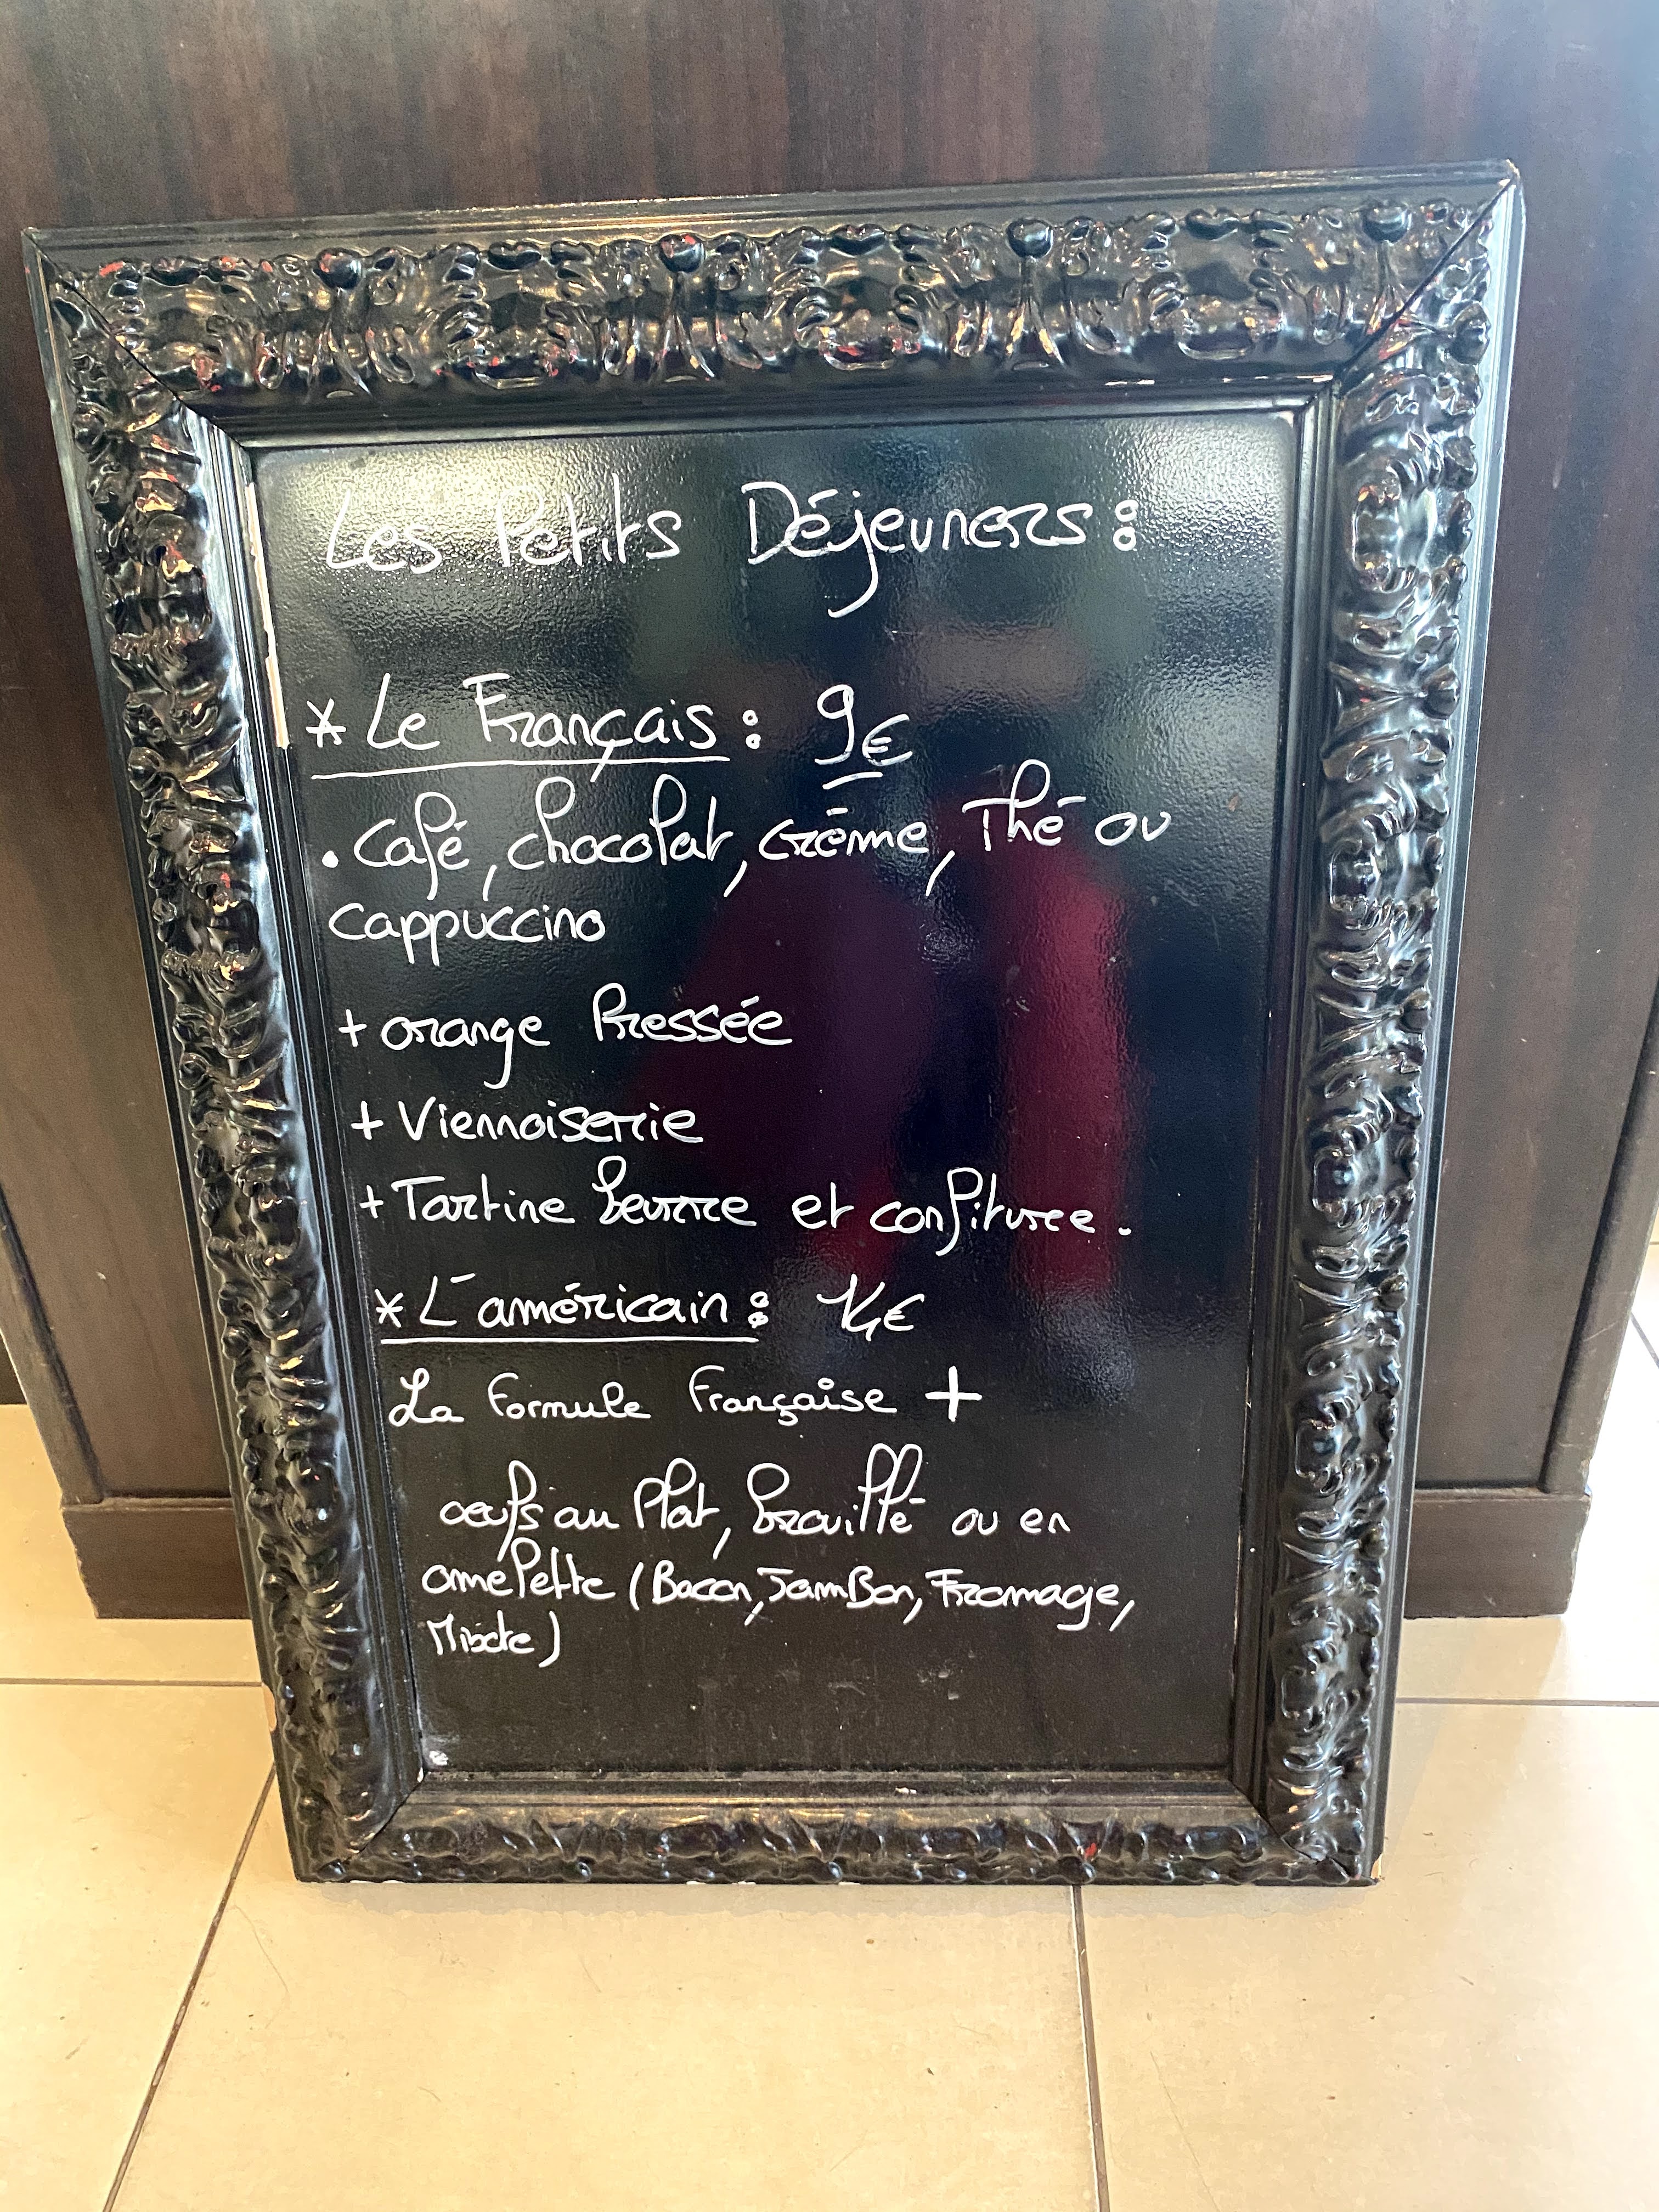 Les Petits Déjeuners :
* Le Français : 9€
. Café, chocolat, crème, Thé ou
cappuccino
+ orange Pressée
+ Viennoiserie
+ Tartine beurre et confiture.
* L'américain : 14€
La Formule Française +
oeufs au Plat, brouillé ou en
omelette (Bacon, JamBon, Fromage,
Mixte)